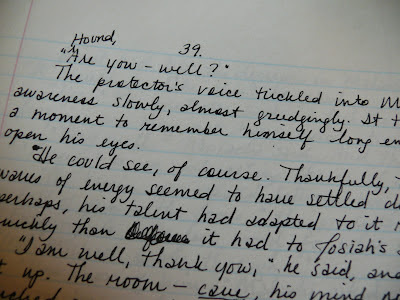 Hound, 39.
"Are you - well?"
The protector's voice tickled into
awareness slowly, almost grudgingly. It
a moment to remember himself long
open his eyes.
He could see, of course. Thankfully,
waves of energy seemed to have settled
perhaps, his talent had adapted to it
quickly than it had to Josiah's
"I am well, thank you," he said, and
up. The room - cave, his mind